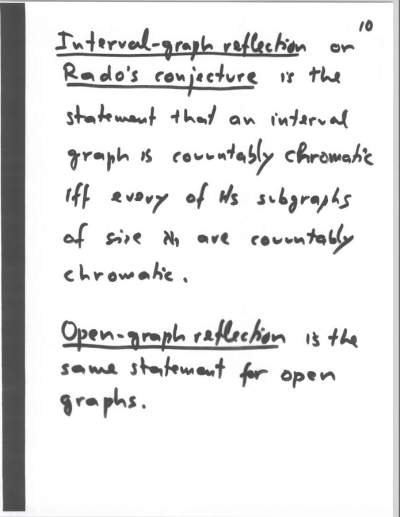 10
Interval-graph reflection or
Rado's conjecture is the
statement that an interval
graph is countably chromatic
iff every of its subgraphs
of size ℵ₁ are countably
chromatic.
Open-graph reflection is the
same statement for open
graphs.